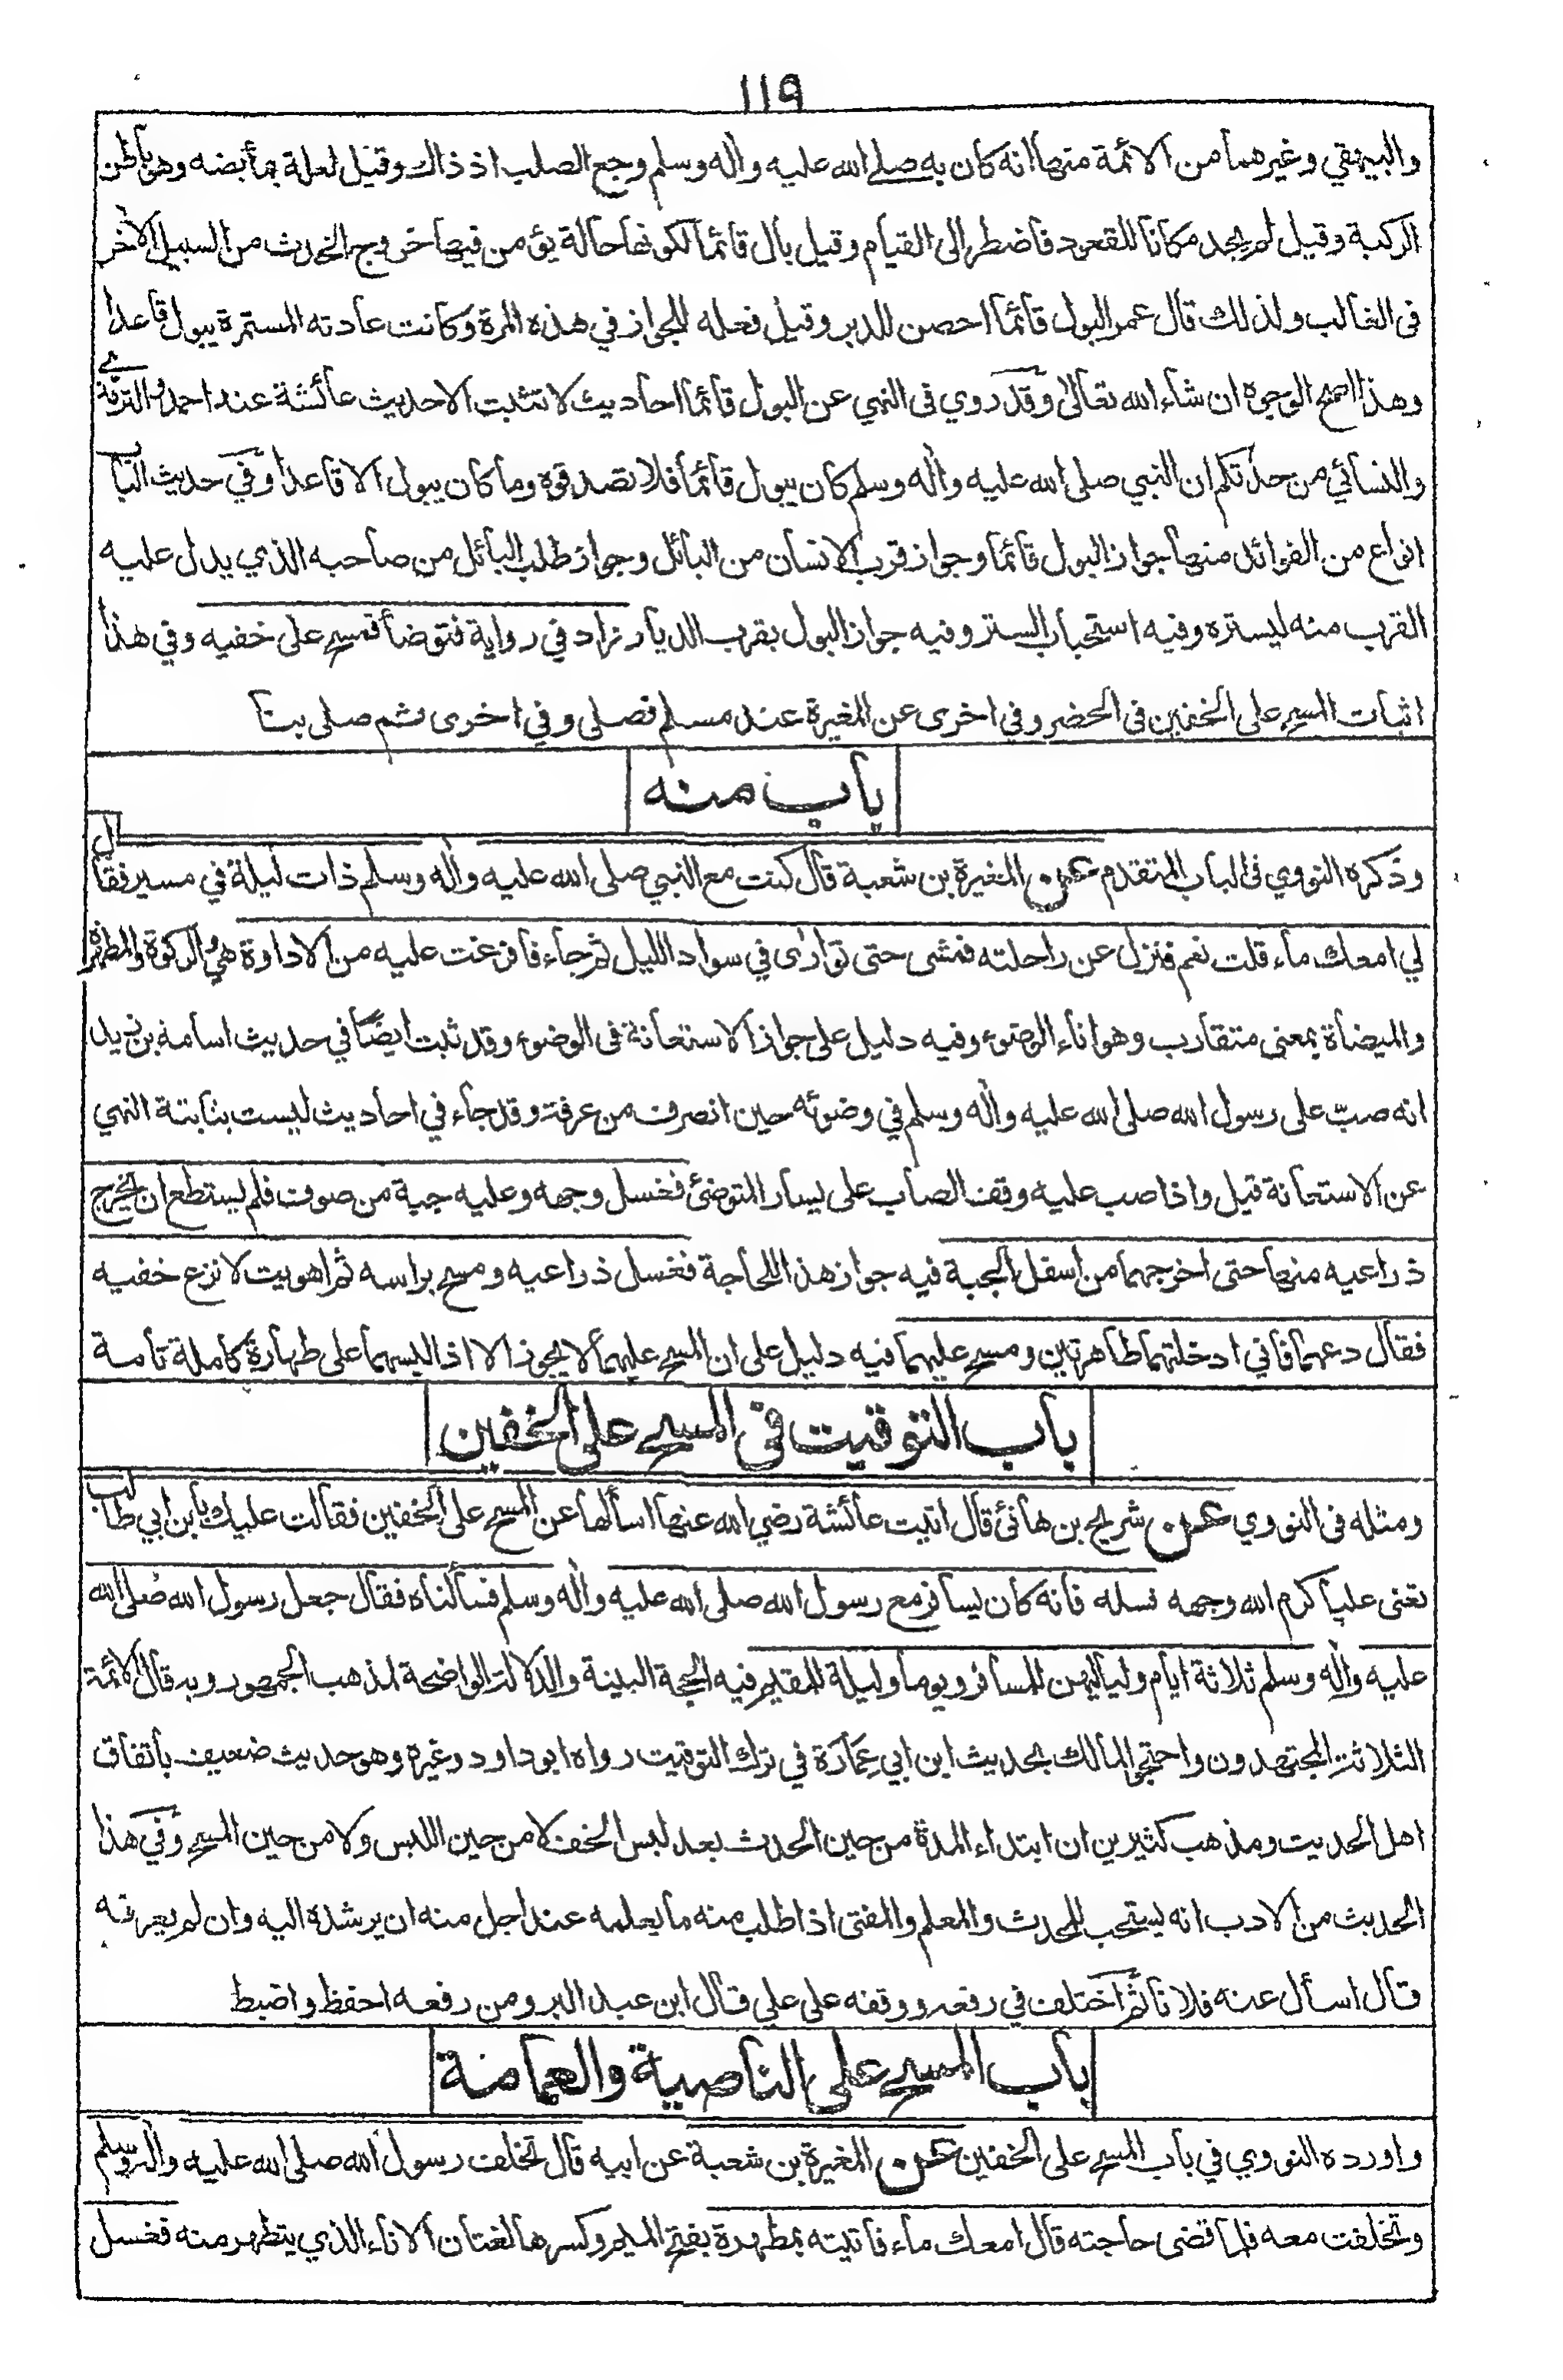 ١١٩
والبيهقي وغيرهما من الائمة منها انه كان به صلى الله عليه واٰله وسلم وجع الصلب اذ ذاك وقيل لعلة بمأبضه وهو باطن
الركبة وقيل لم يجد مكانا للقعود فاضطر الى القيام وقيل بال قائما لكونها حالة يؤمن فيها خروج الحدث من السبيل الاٰخر
فى الغالب ولذلك قال عمر البول قائما احصن للدبر وقيل فعله للجواز في هذه المرة وكانت عادته المستمرة يبول قاعدا
وهذا اصح الوجوه ان شاء الله تعالى وقد روي فى النهي عن البول قائما احاديث لا تثبت الا حديث عائشة عند احمد والترمذي
والنسائي من حدثكم ان النبي صلى الله عليه واٰله وسلم كان يبول قائما فلا تصدقوه وما كان يبول الا قاعدا وفي حديث الباب
انواع من الفوائد منها جواز البول قائما وجواز قرب الانسان من البائل وجواز طلب البائل من صاحبه الذي يدل عليه
القرب منه ليستره وفيه استحباب الستر وفيه جواز البول بقرب الديار زاد في رواية فتوضأ فمسح على خفيه وفي هذا
اثبات المسح على الخفين فى الحضر وفي اخرى عن المغيرة عند مسلم فصلى وفي اخرى ثم صلى بنا
باب منه
وذكره النووي فى الباب المتقدم عن المغيرة بن شعبة قال كنت مع النبي صلى الله عليه واٰله وسلم ذات ليلة في مسير فقال
لي امعك ماء قلت نعم فنزل عن راحلته فمشى حتى توارى في سواد الليل ثم جاء فافرغت عليه من الاداوة هي والركوة والمطهرة
والميضأة بمعنى متقارب وهو اناء الوضوء وفيه دليل على جواز الاستعانة فى الوضوء وقد ثبت ايضًا في حديث اسامة بن زيد
انه صبّ على رسول الله صلى الله عليه واٰله وسلم في وضوئه حين انصرف من عرفة وقد جاء في احاديث ليست بثابتة النهي
عن الاستعانة قيل واذا صب عليه وقف الصاب على يسار المتوضئ فغسل وجهه وعليه جبة من صوف فلم يستطع ان يخرج
ذراعيه منها حتى اخرجهما من اسفل الجبة فيه جواز هذا للحاجة فغسل ذراعيه ومسح براسه ثم اهويت لانزع خفيه
فقال دعهما فاني ادخلتهما طاهرتين ومسح عليهما فيه دليل على ان المسح عليهما لا يجوز الا اذا لبسهما على طهارة كاملة تامة
باب التوقيت فى المسح على الخفين
ومثله فى النووي عن شريح بن هانئ قال اتيت عائشة رضي الله عنها اسألها عن المسح على الخفين فقالت عليك بابن ابي طالب
تعنى عليا كرم الله وجهه فسله فانه كان يسافر مع رسول الله صلى الله عليه واٰله وسلم فسألناه فقال جعل رسول الله صلى الله
عليه واٰله وسلم ثلاثة ايام ولياليهن للمسافر ويوما وليلة للمقيم فيه الحجة البينة والدلالة الواضحة لمذهب الجمهور وبه قال الائمة
الثلاثة المجتهدون واحتجوا لمالك بحديث ابن ابي عمارة في ترك التوقيت رواه ابو داود وغيره وهو حديث ضعيف باتفاق
اهل الحديث ومذهب كثيرين ان ابتداء المدة من حين الحدث بعد لبس الخف لا من حين اللبس ولا من حين المسح وفي هذا
الحديث من الادب انه يستحب للمحدث والمعلم والمفتى اذا طلب منه ما يعلمه عند اجل منه ان يرشده اليه وان لم يعرفه
قال اسأل عنه فلانا ثم اختلف في رفعه ووقفه على علي قال ابن عبد البر ومن رفعه احفظ واضبط
باب المسح على الناصية والعمامة
واورده النووي في باب المسح على الخفين عن المغيرة بن شعبة عن ابيه قال تخلف رسول الله صلى الله عليه واٰله وسلم
وتخلفت معه فلما قضى حاجته قال امعك ماء فاتيته بمطهرة بفتح الميم وكسرها لغتان الاناء الذي يتطهر منه فغسل